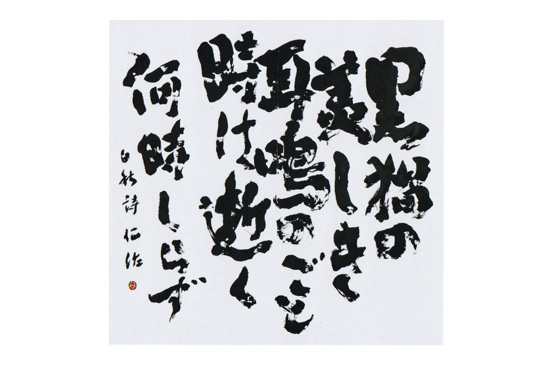 黒猫の
美しき
耳鳴のごと
時は逝く
何時しらず
白秋詩